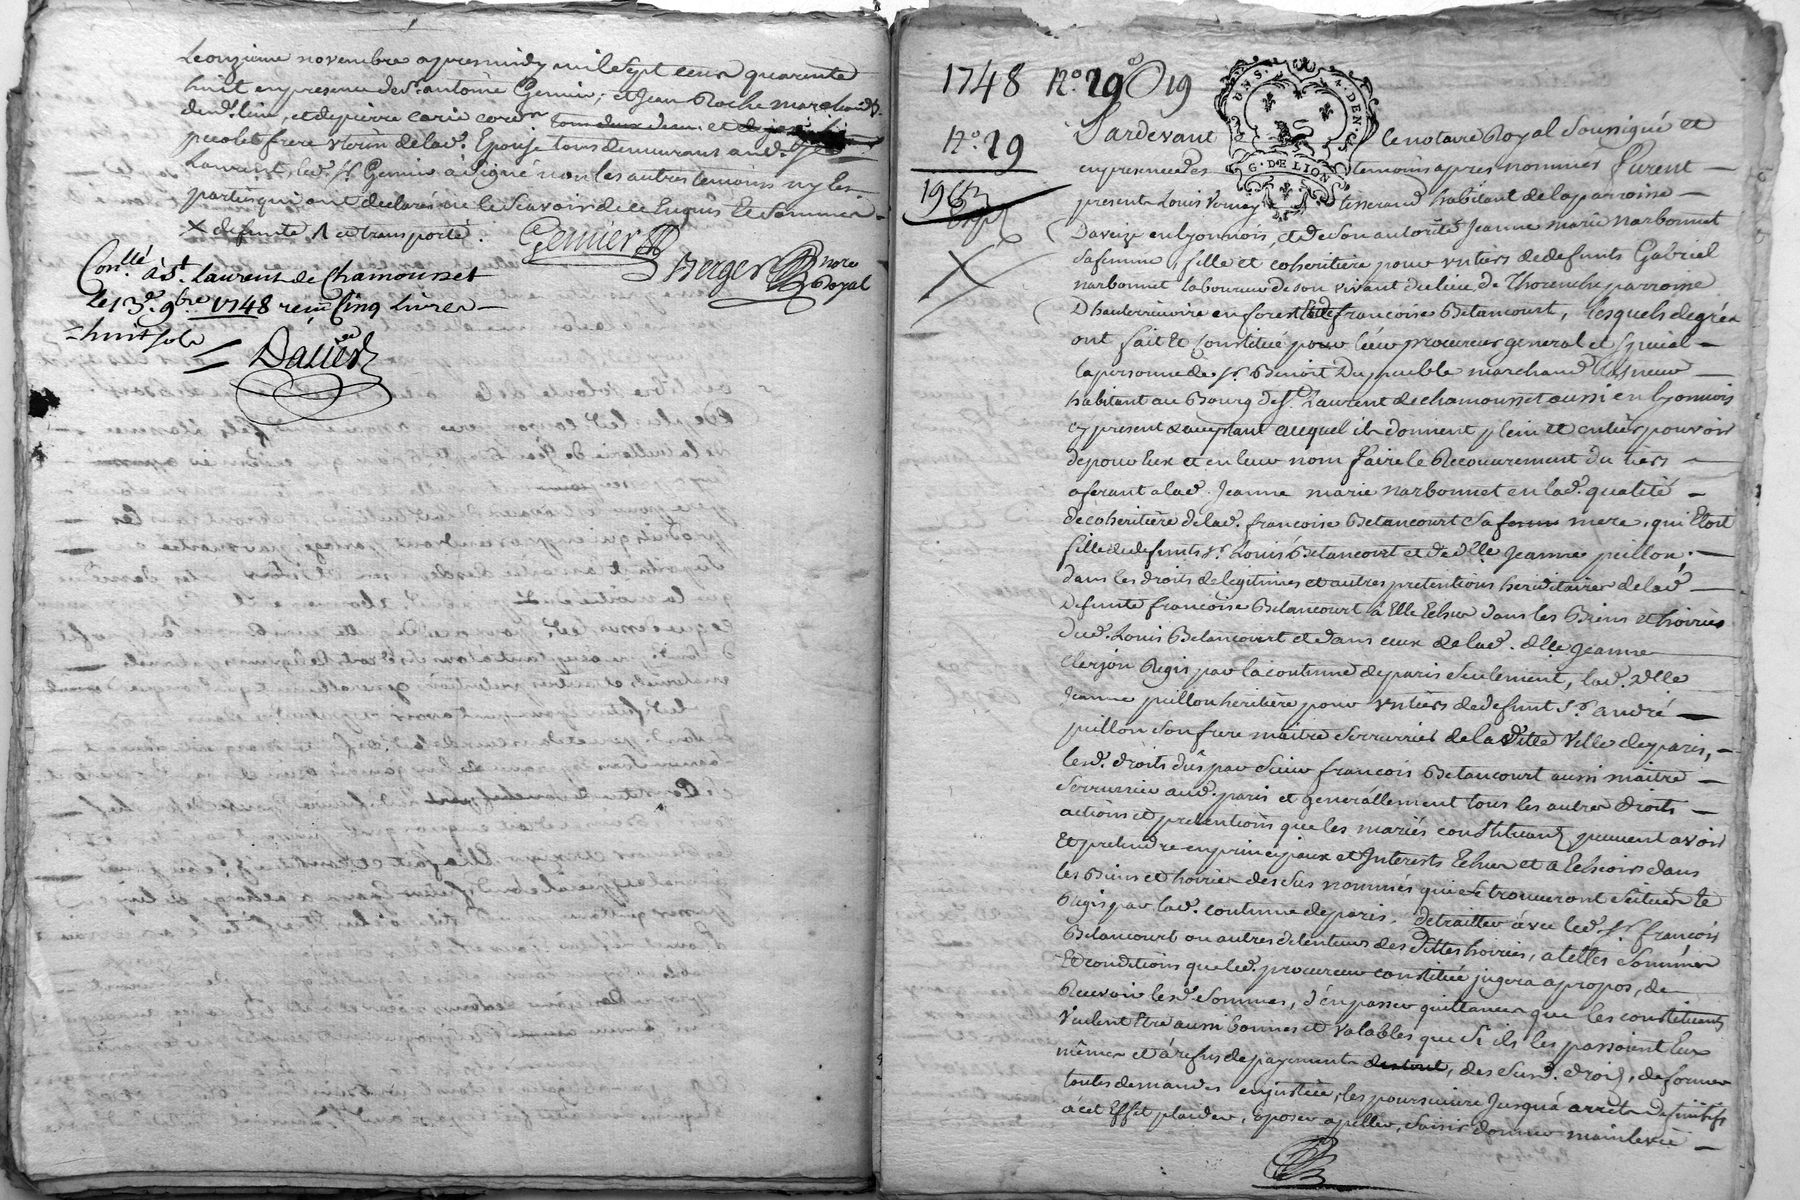 Le onzieme novembre apres midy mil sept cens quarente
huit en presence de sr. antoine Gemier, et Jean Roche marchands
dud. lieu, et de pierre carie cord.er
frere uterin de lad. Epouse tous demeurans aud. St
Laurent, led. Sr. Gemier a signé non les autres temoins ny les
parties qui ont declaré ne le scavoir de ce Enquis et sommés
X defunte /\ et transporté.
Gemier
Berger nore Royal
Con.llé à St. Laurent de Chamousset
le 13e. 9bre 1748 reçu cinq livres
huit sols
Dalier
1748 No. 29 19
No. 29
196
G. DE LION
Pardevant le notaire Royal soussigné et
en presence des temoins apres nommés furent
presents Louis Vernay tisserand habitant de la parroisse
Daveize en lyonnois, et de son autorité Jeanne marie narbonnet
sa femme, fille et coheritiere pour un tiers de defunts Gabriel
narbonnet laboureur de son vivant du lieu de Thorenche parroisse
Dhauterivoire en forest et de francoise Betancourt, lesquels de gré
ont fait et constitué pour leur procureur general et special
la personne de Sr. Benoit Dupeuble marchand
habitant au Bourg de St. Laurent de chamousset aussi en lyonnois
cy present acceptant auquel ils donnent plein et entier pouvoir
de pour Eux et en leur nom faire le Recouvrement du tiers
aferant a lad. Jeanne marie narbonnet en lad. qualité
de coheritière de lad. francoise Betancourt sa mere, qui Etoit
fille de defunts Sr. Louis Betancourt et de dlle Jeanne peillon,
dans les droits de legitimes et autres pretentions hereditaires de lad.
Defunte francoise Betancourt à Elle Echus dans les Biens et hoiries
dud. Louis Betancourt et dans ceux de lad. dlle Jeanne
Regis par la coutume de paris seulement, lad. dlle
Jeanne peillon heritière pour un tiers de defunt Sr. andré
peillon son frere maitre serrurier de la Ville de paris,
lesd. droits dûs par Sieur francois Betancourt aussi maitre
serrurier aud. paris et generallement tous les autres droits
actions et pretentions que les mariés constituants peuvent avoir
Et pretendre en principaux et Interests Echus et a Echeoir dans
les Biens et hoiries des sus nommés qui se trouveront situés et
Regis par lad. coutume de paris. De traitter avec led. Sr. francois
Betancourt ou autres detenteurs des dittes hoiries, a telles sommes
Et conditions que led. procureur constitué jugera apropos, de
Recevoir lesd. sommes, d'en passer quittances que les constituants
Veulent Etre aussi bonnes et valables que si ils les passoient Eux
mêmes et à refus de payement, des susd. droits, de former
toutes demandes en justice, les poursuivre jusqu'à arrets definitifs
à cet Effet plaider, oposer, apeller, saisir donner mainlevée